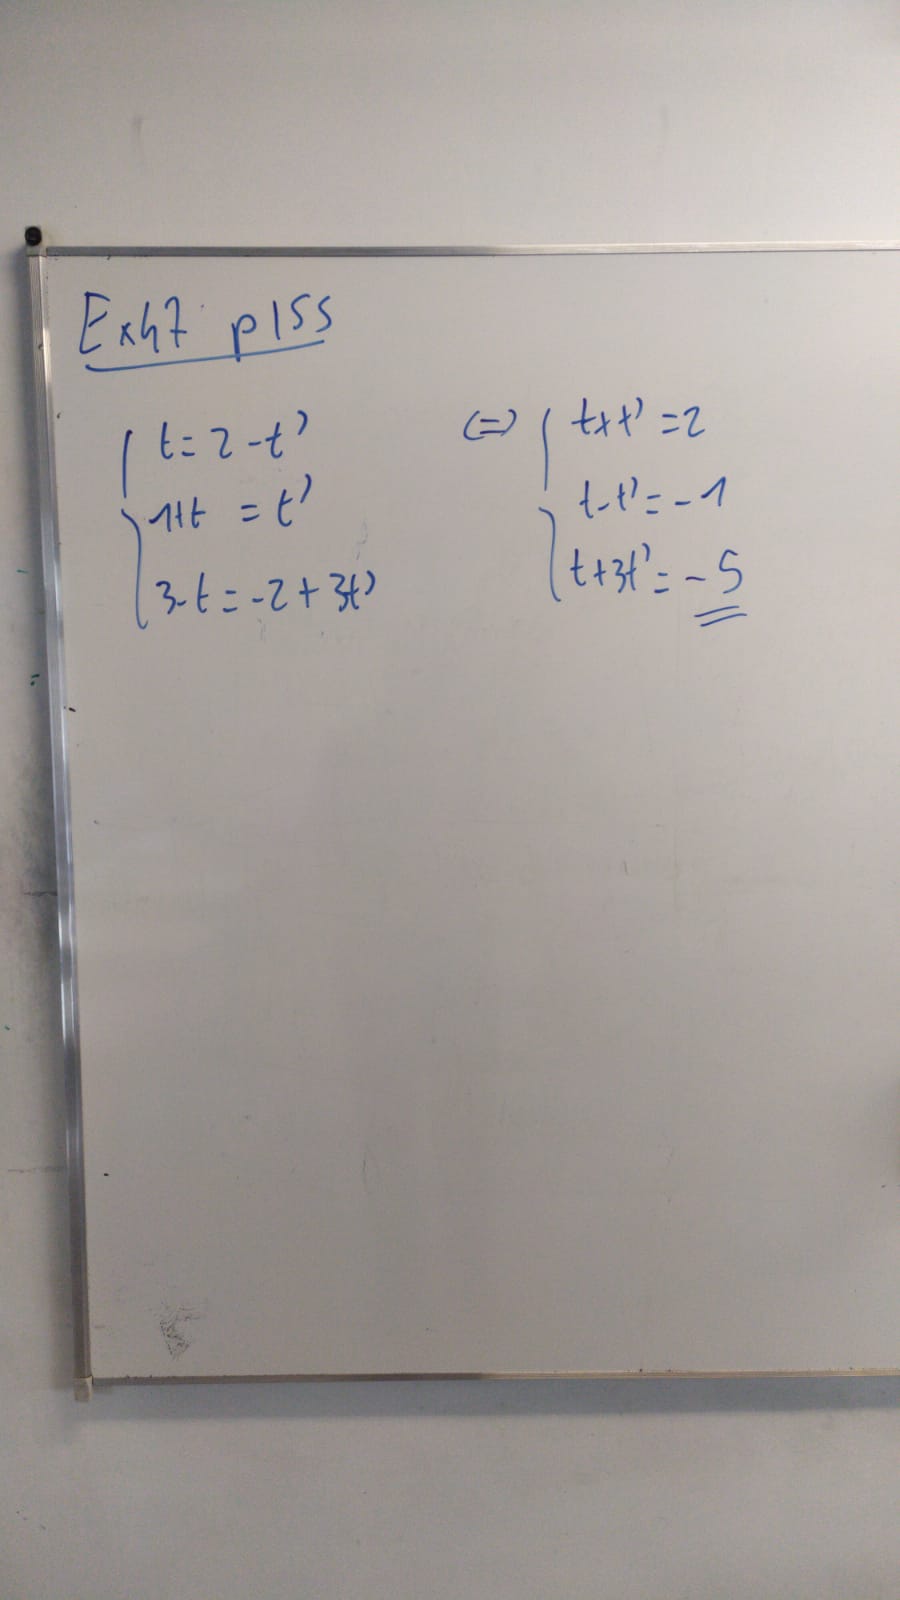 Ex47 p155
t = 2 - t'
1+t = t'
3-t = -2 + 3t'
⇔
t+t' = 2
t-t' = -1
t+3t' = -5